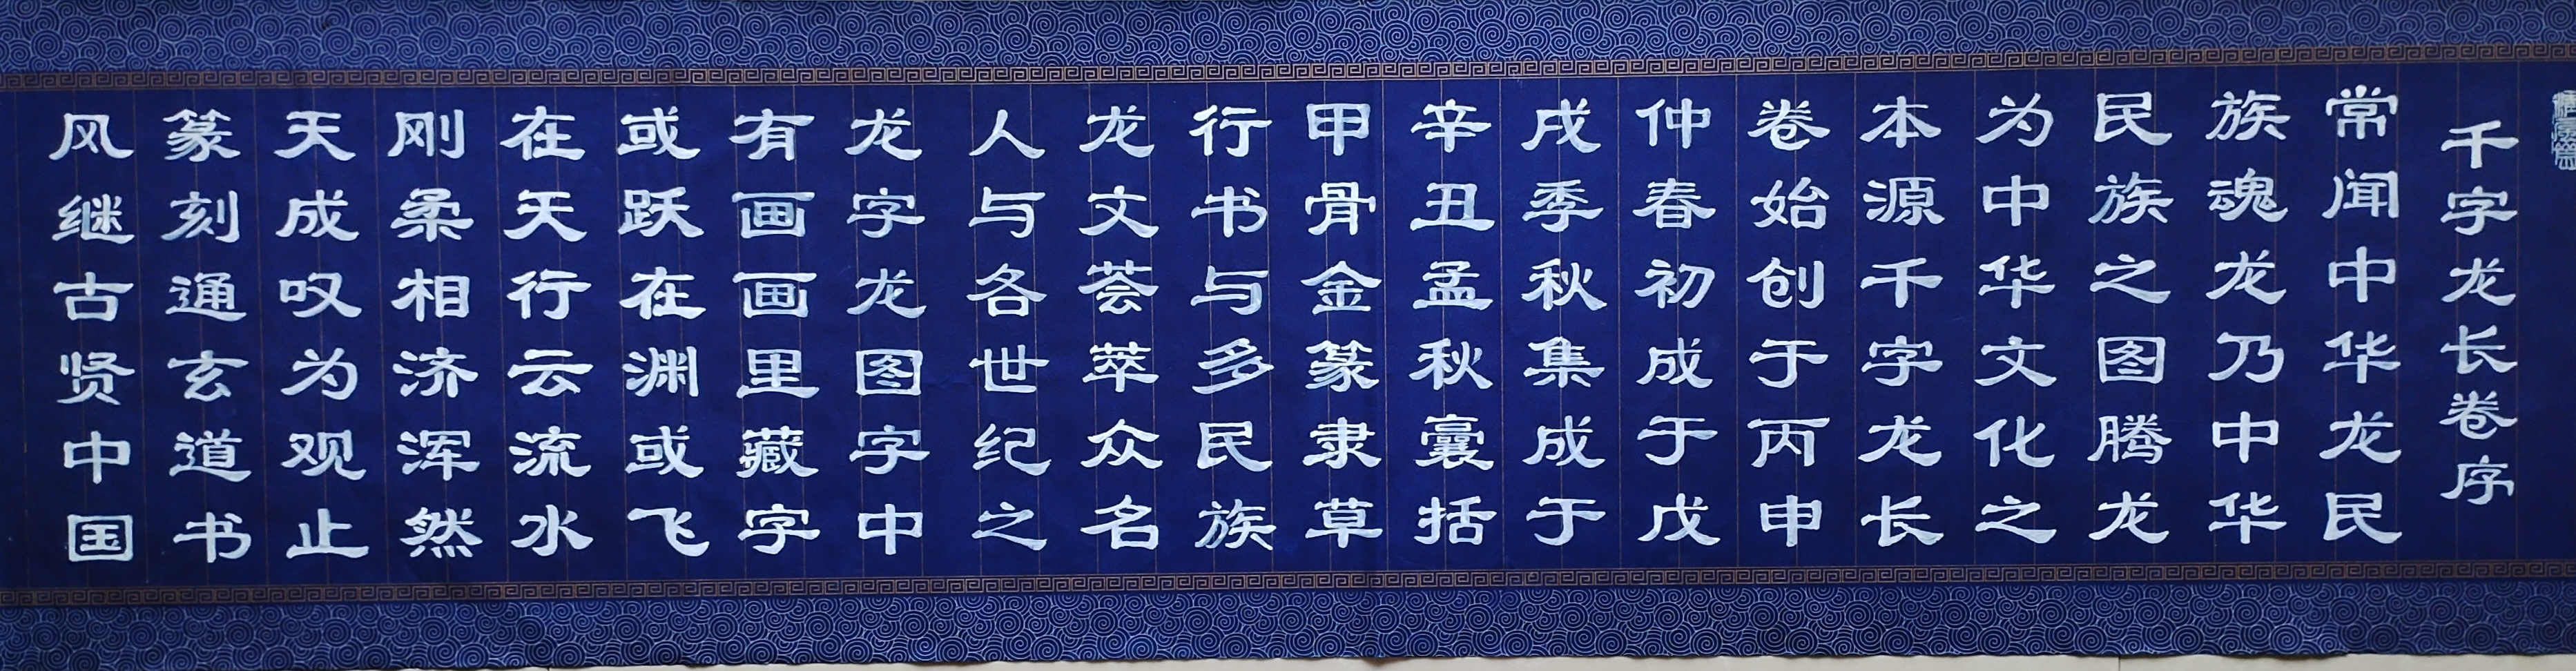 千字龙长卷序
常闻中华龙民
族魂龙乃中华
民族之图腾龙
为中华文化之
本源千字龙长
卷始创于丙申
仲春初成于戊
戌季秋集成于
辛丑孟秋囊括
甲骨金篆隶草
行书与多民族
龙文荟萃众名
人与各世纪之
龙字龙图字中
有画画里藏字
或跃在渊或飞
在天行云流水
刚柔相济浑然
天成叹为观止
篆刻通玄道书
风继古贤中国